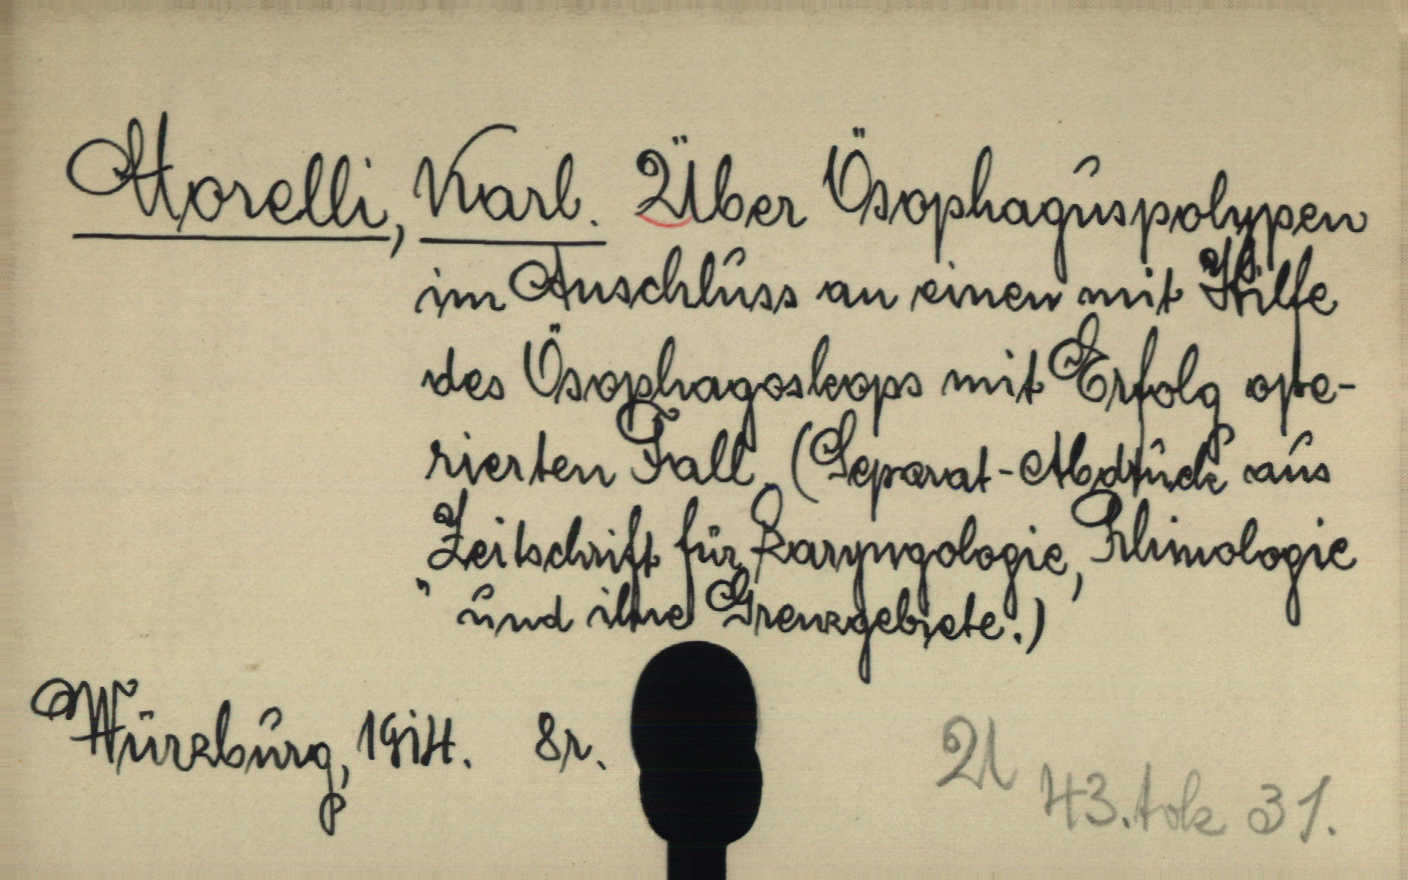 Morelli, Karl. Über Ösophaguspolypen
im Anschluss an einen mit Hilfe
des Ösophagoskops mit Erfolg ope-
rierten Fall. (Separat-Abdruck aus
Zeitschrift für Laryngologie, Rhinologie
" und ihre Grenzgebiete.)
Würzburg, 1914. 8r.
U
43.tok 31.